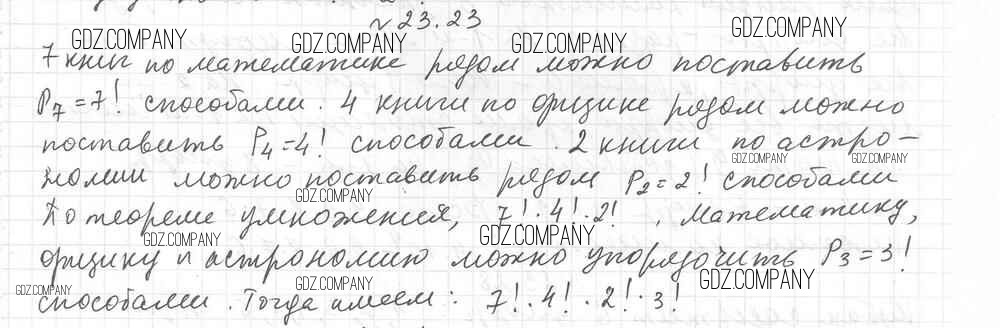 № 23.23
GDZ.COMPANY
GDZ.COMPANY GDZ.COMPANY GDZ.COMPANY
7 книг по математике рядом можно поставить
P₇=7! способами. 4 книги по физике рядом можно
поставить P₄=4! способами. 2 книги по астро-
GDZ.COMPANY GDZ.COMPANY
номии можно поставить рядом P₂=2! способами
GDZ.COMPANY
По теореме умножения, 7!·4!·2!, математику,
GDZ.COMPANY GDZ.COMPANY
физику и астрономию можно упорядочить P₃=3!
GDZ.COMPANY GDZ.COMPANY
способами. Тогда имеем: 7!·4!·2!·3!